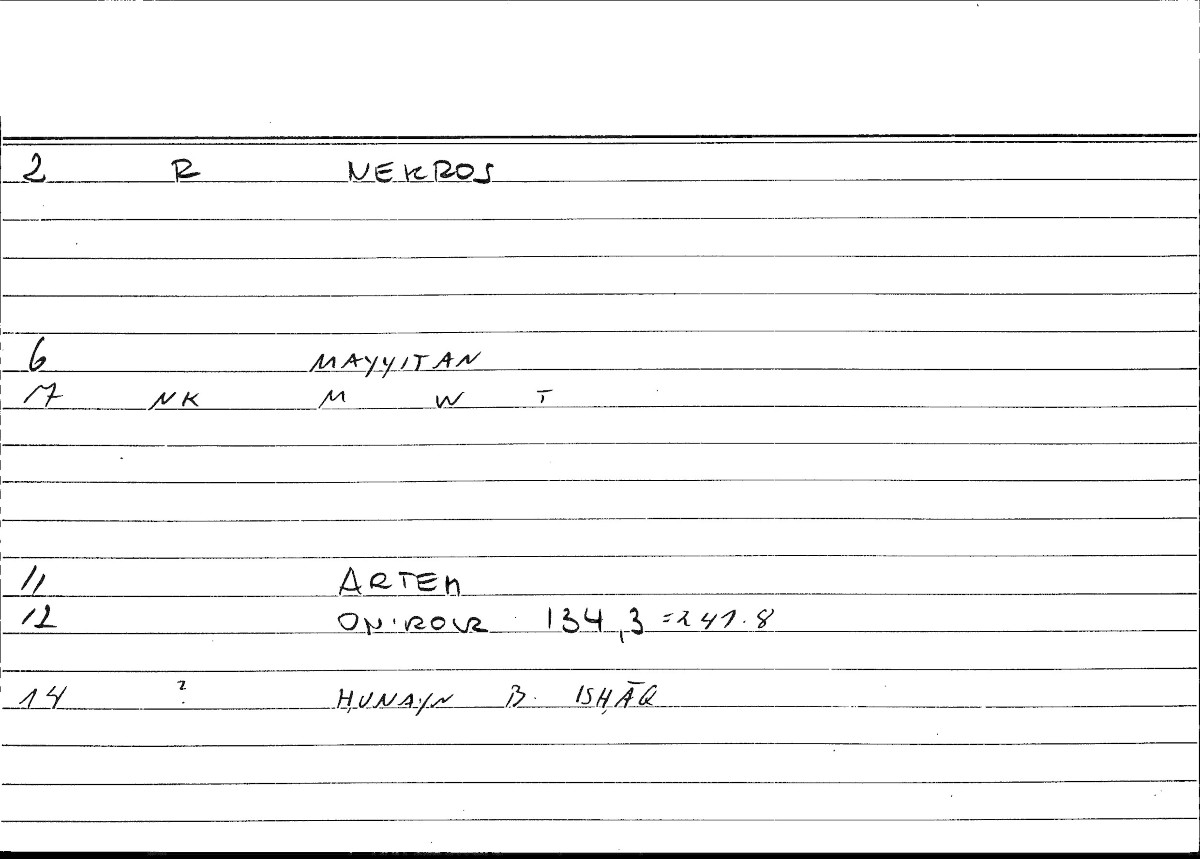 2 R NEKROS
6 MAYYITAN
7 NK M W T
11 ARTEM
12 ONIROCR 134,3 =241.8
14 ? ḤUNAYN B. ISḤĀQ